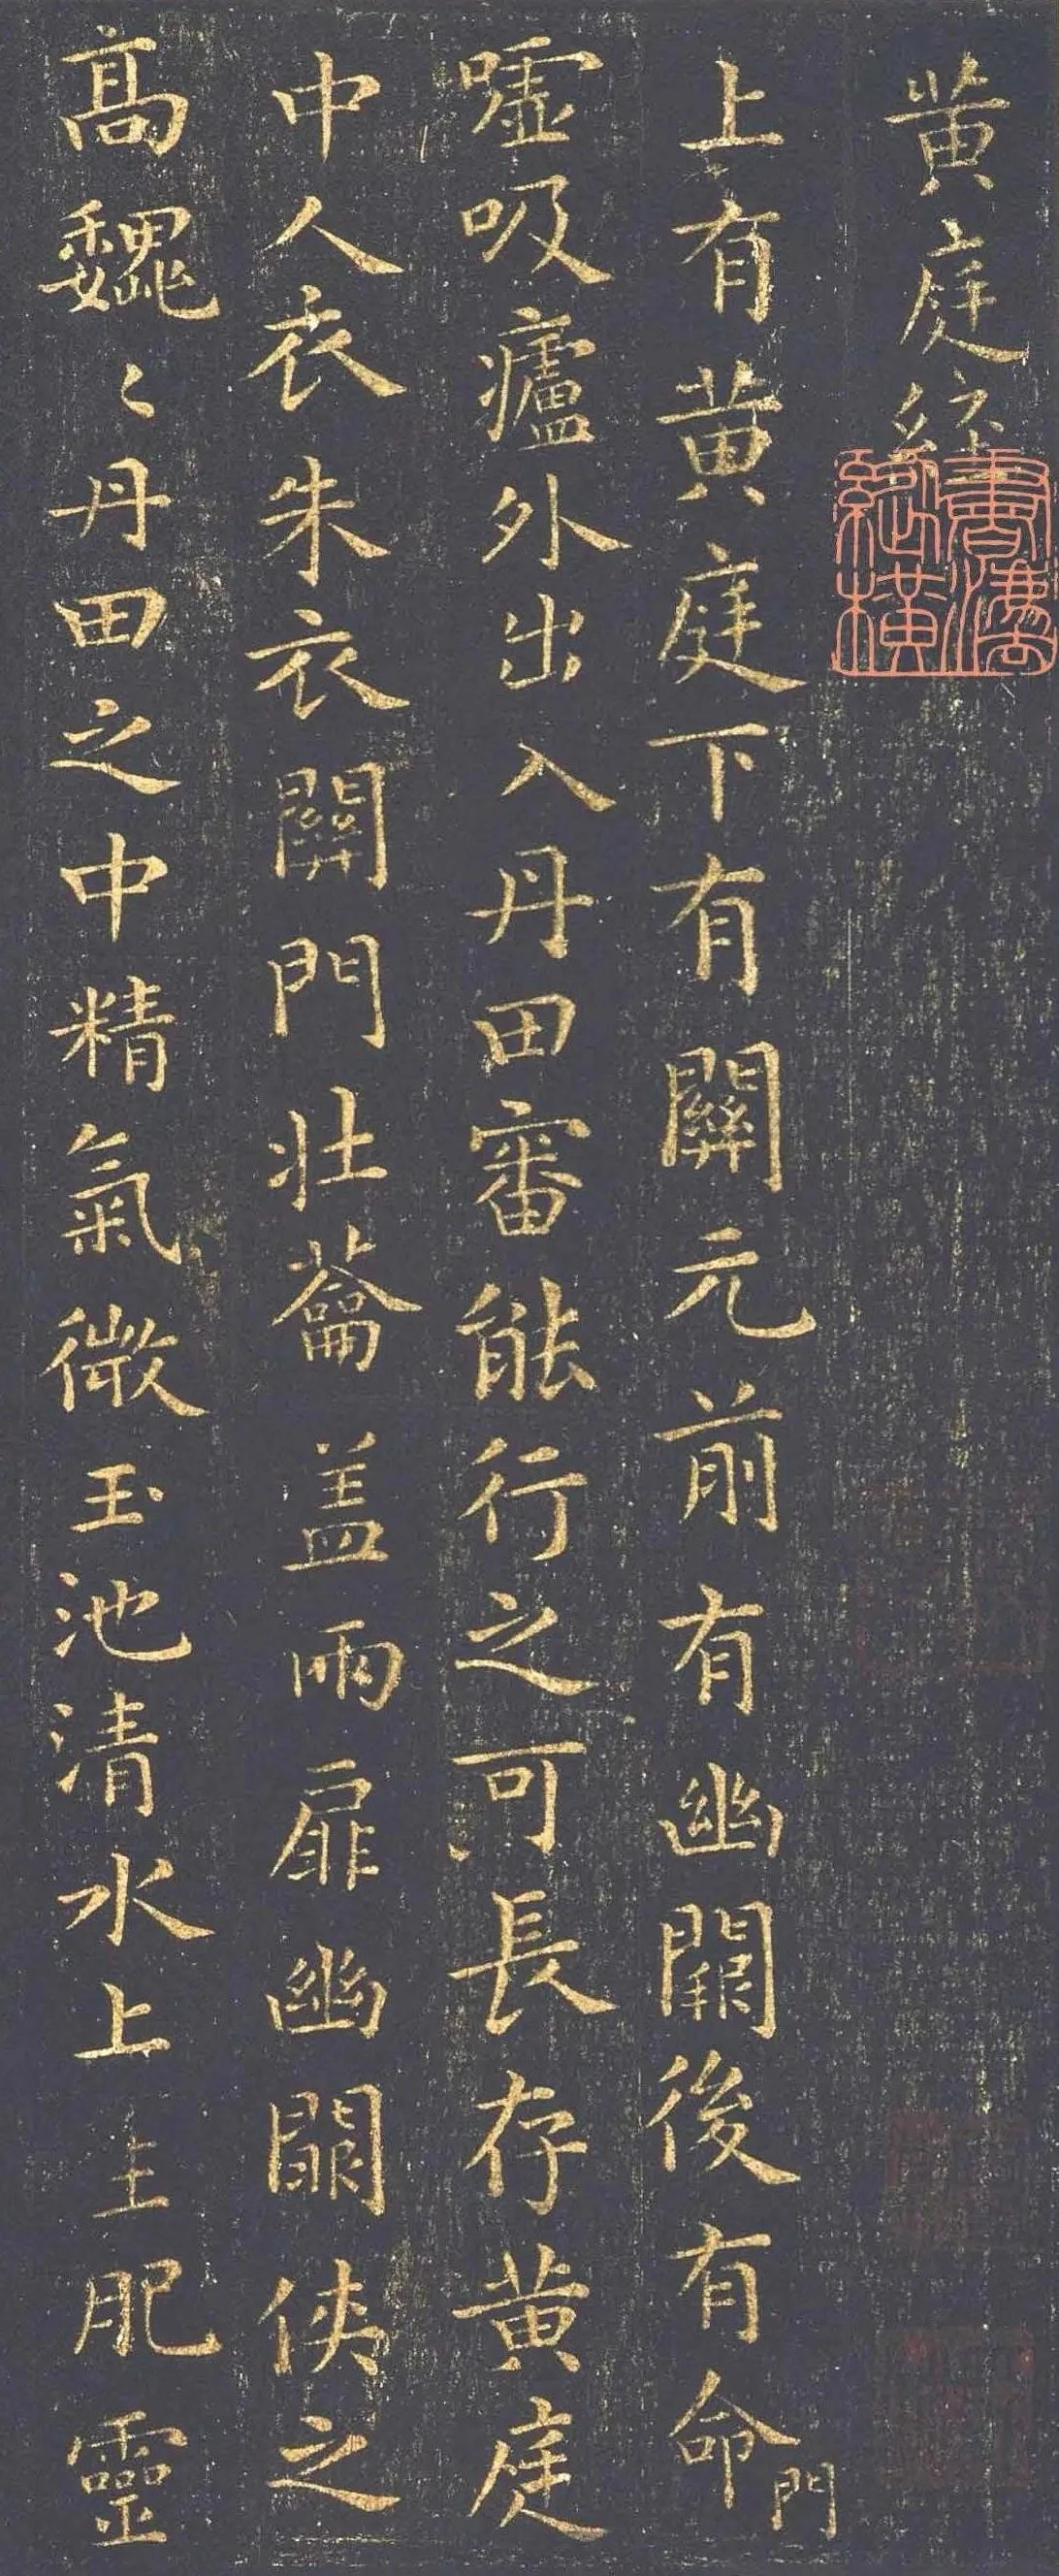 黄庭經
上有黄庭下有關元前有幽闕後有命門
噓吸廬外出入丹田審能行之可長存黄庭
中人衣朱衣關門壯蘥盖兩扉幽闕俠之
高巍〻丹田之中精氣微玉池清水上主肥靈
書瀆縱橫